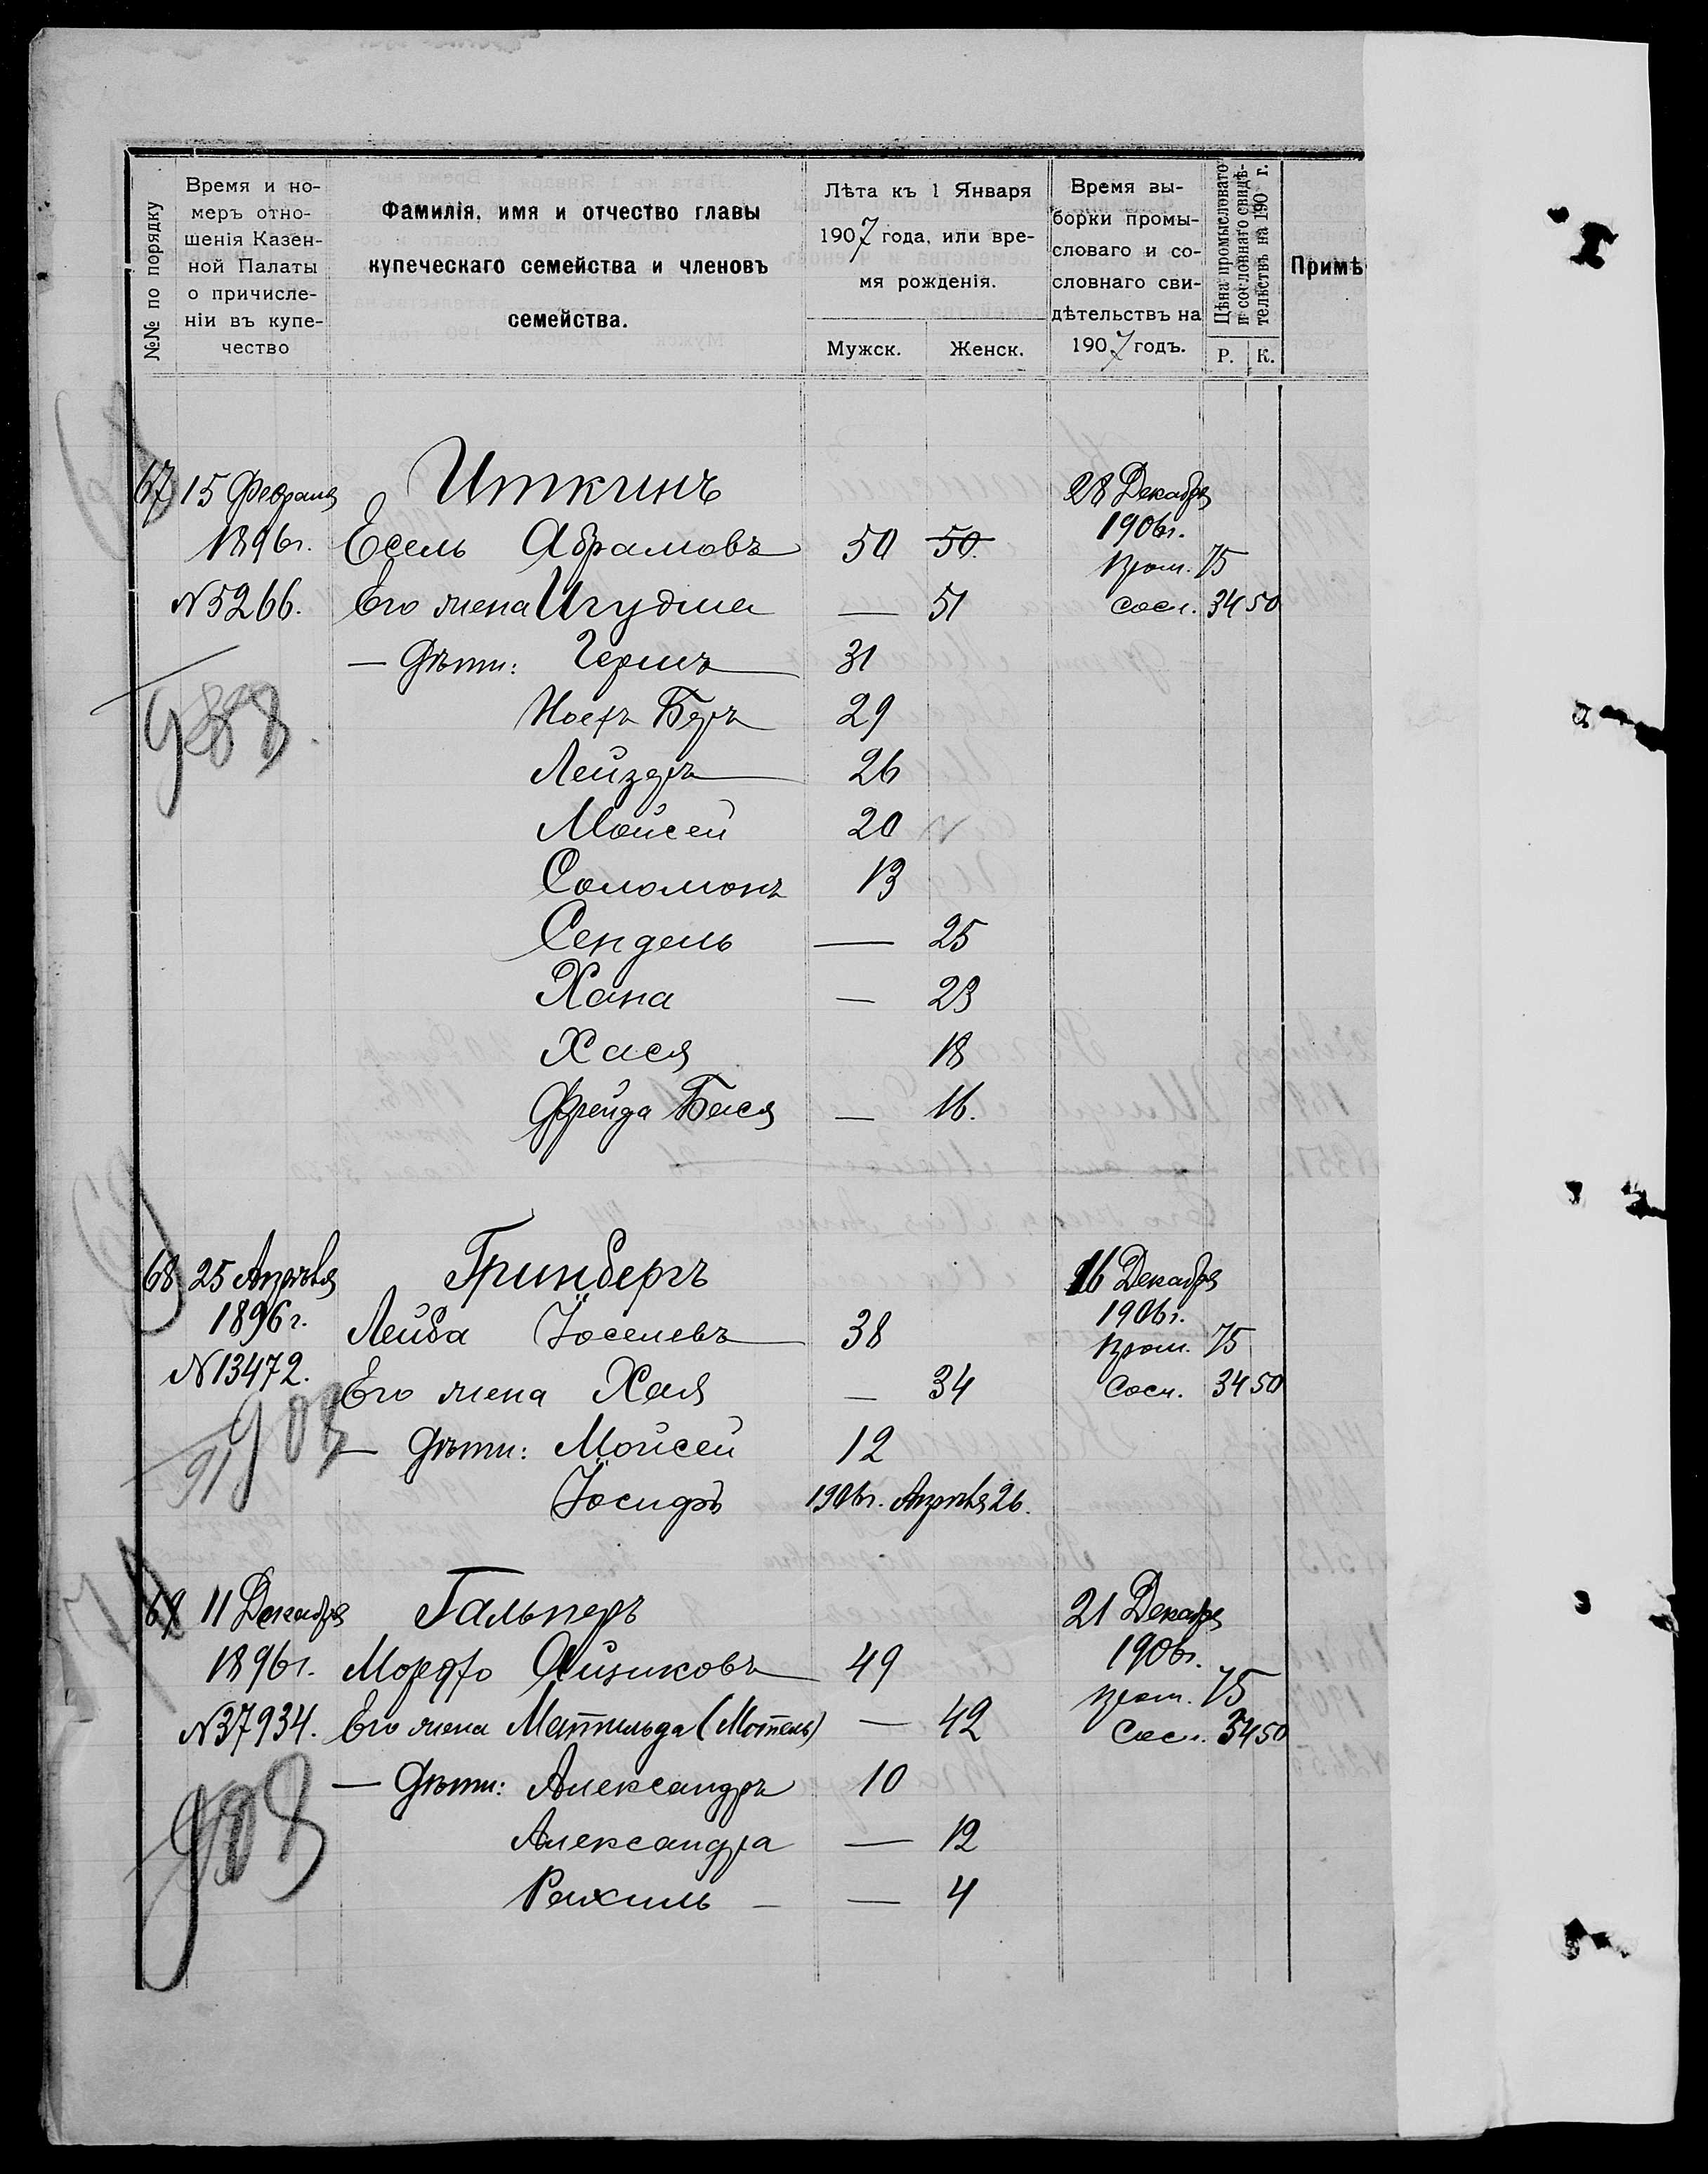 №№ по порядку
Время и но-
меръ отно-
шенія Казен-
ной Палаты
о причисле-
ніи въ купе-
чество
Фамилія, имя и отчество главы
купеческаго семейства и членовъ
семейства.
Лѣта къ 1 Января
1907 года, или вре-
мя рожденія.
Мужск. Женск.
Время вы-
борки промы-
словаго и со-
словнаго сви-
дѣтельствъ на
1907 годъ.
Цѣна промысловаго
и сословнаго свидѣ-
тельствъ на 190 г.
Р. К.
Примѣ
67 15 Февраля Иткинъ 28 Декабря
1896г. Есель Абрамовъ 50 50. 1906г.
пром. 75
N5266. Его жена Игудша — 51 сосл. 34 50
— Дѣти: Герцъ 31
988.
Иосеръ Беръ 29
Лейзеръ 26
Мойсей 20
Соломонъ 13
Сендель — 25
Хана — 23
Хася 18
Фрейда Бася — 16.
68 25 Апрѣля Гринбергъ 16 Декабря
1896г. Лейба Іоселевъ 38 1906г.
пром. 75
N13472. Его жена Хая — 34 Сосл. 34 50
908
— Дѣти: Мойсей 12
Іосифъ 1906г. Апрѣля 26.
69 11 Декабря Гальперъ 21 Декабря
1896г. Мордхо Айзиковъ 49 1906г.
пром. 75
N37934. Его жена Матильда (Мотель) — 42 Сосл. 34 50
— Дѣти: Александръ 10
908
Александра — 12
Рахиль — — 4